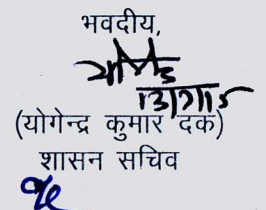 भवदीय,
13/7/15
(योगेन्द्र कुमार दक)
शासन सचिव